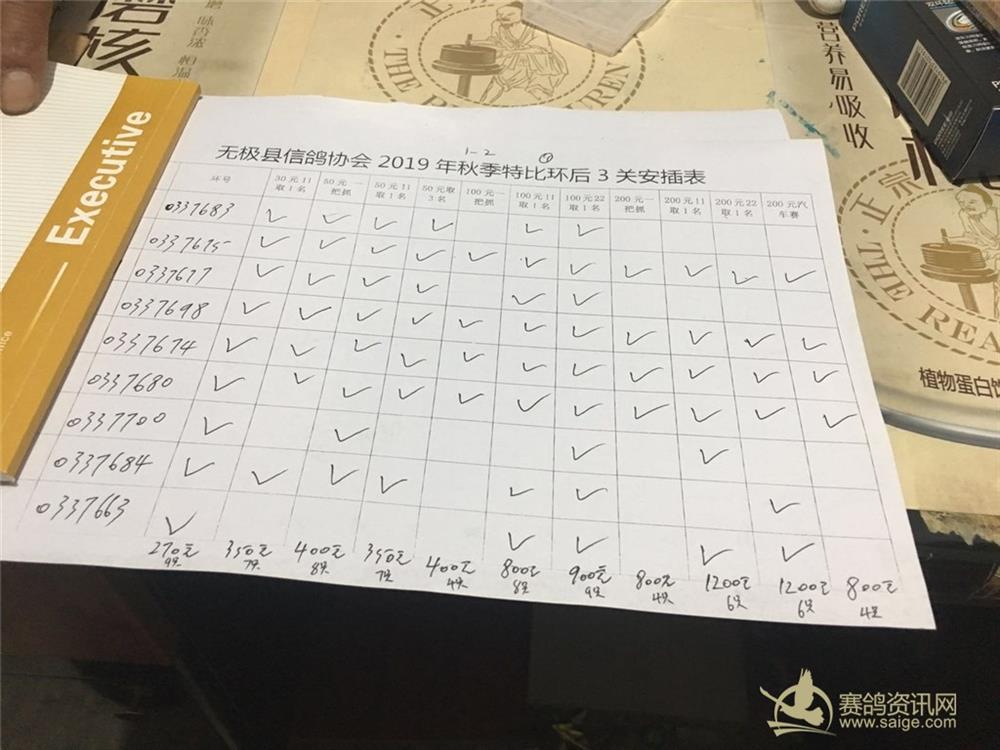 磨
核
营养易吸收
正宗
THE REA
植物蛋白饮
Executive
1-2 ①
无极县信鸽协会 2019 年秋季特比环后 3 关安插表
环号 30元11取1名 50元一把抓 50元11取1名 50元取3名 100元一把抓 100元11取1名 100元22取1名 200元一把抓 200元11取1名 200元22取1名 200元汽车赛
0337683 ✓ ✓ ✓ ✓ ✓ ✓
0337675 ✓ ✓ ✓ ✓ ✓ ✓ ✓ ✓ ✓ ✓ ✓
0337677 ✓ ✓ ✓ ✓ ✓ ✓
0337698 ✓ ✓ ✓ ✓ ✓ ✓ ✓ ✓ ✓ ✓ ✓
0337674 ✓ ✓ ✓ ✓ ✓ ✓ ✓ ✓ ✓ ✓ ✓
0337680 ✓ ✓ ✓ ✓ ✓ ✓ ✓ ✓ ✓ ✓ ✓
0337700 ✓ ✓ ✓ ✓
0337684 ✓ ✓ ✓ ✓ ✓ ✓ ✓
0337663 ✓ ✓ ✓ ✓ ✓
270元 350元 400元 350元 400元 800元 900元 800元 1200元 1200元 800元
9只 7只 8只 7只 4只 8只 9只 4只 6只 6只 4只
赛鸽资讯网
www.saige.com